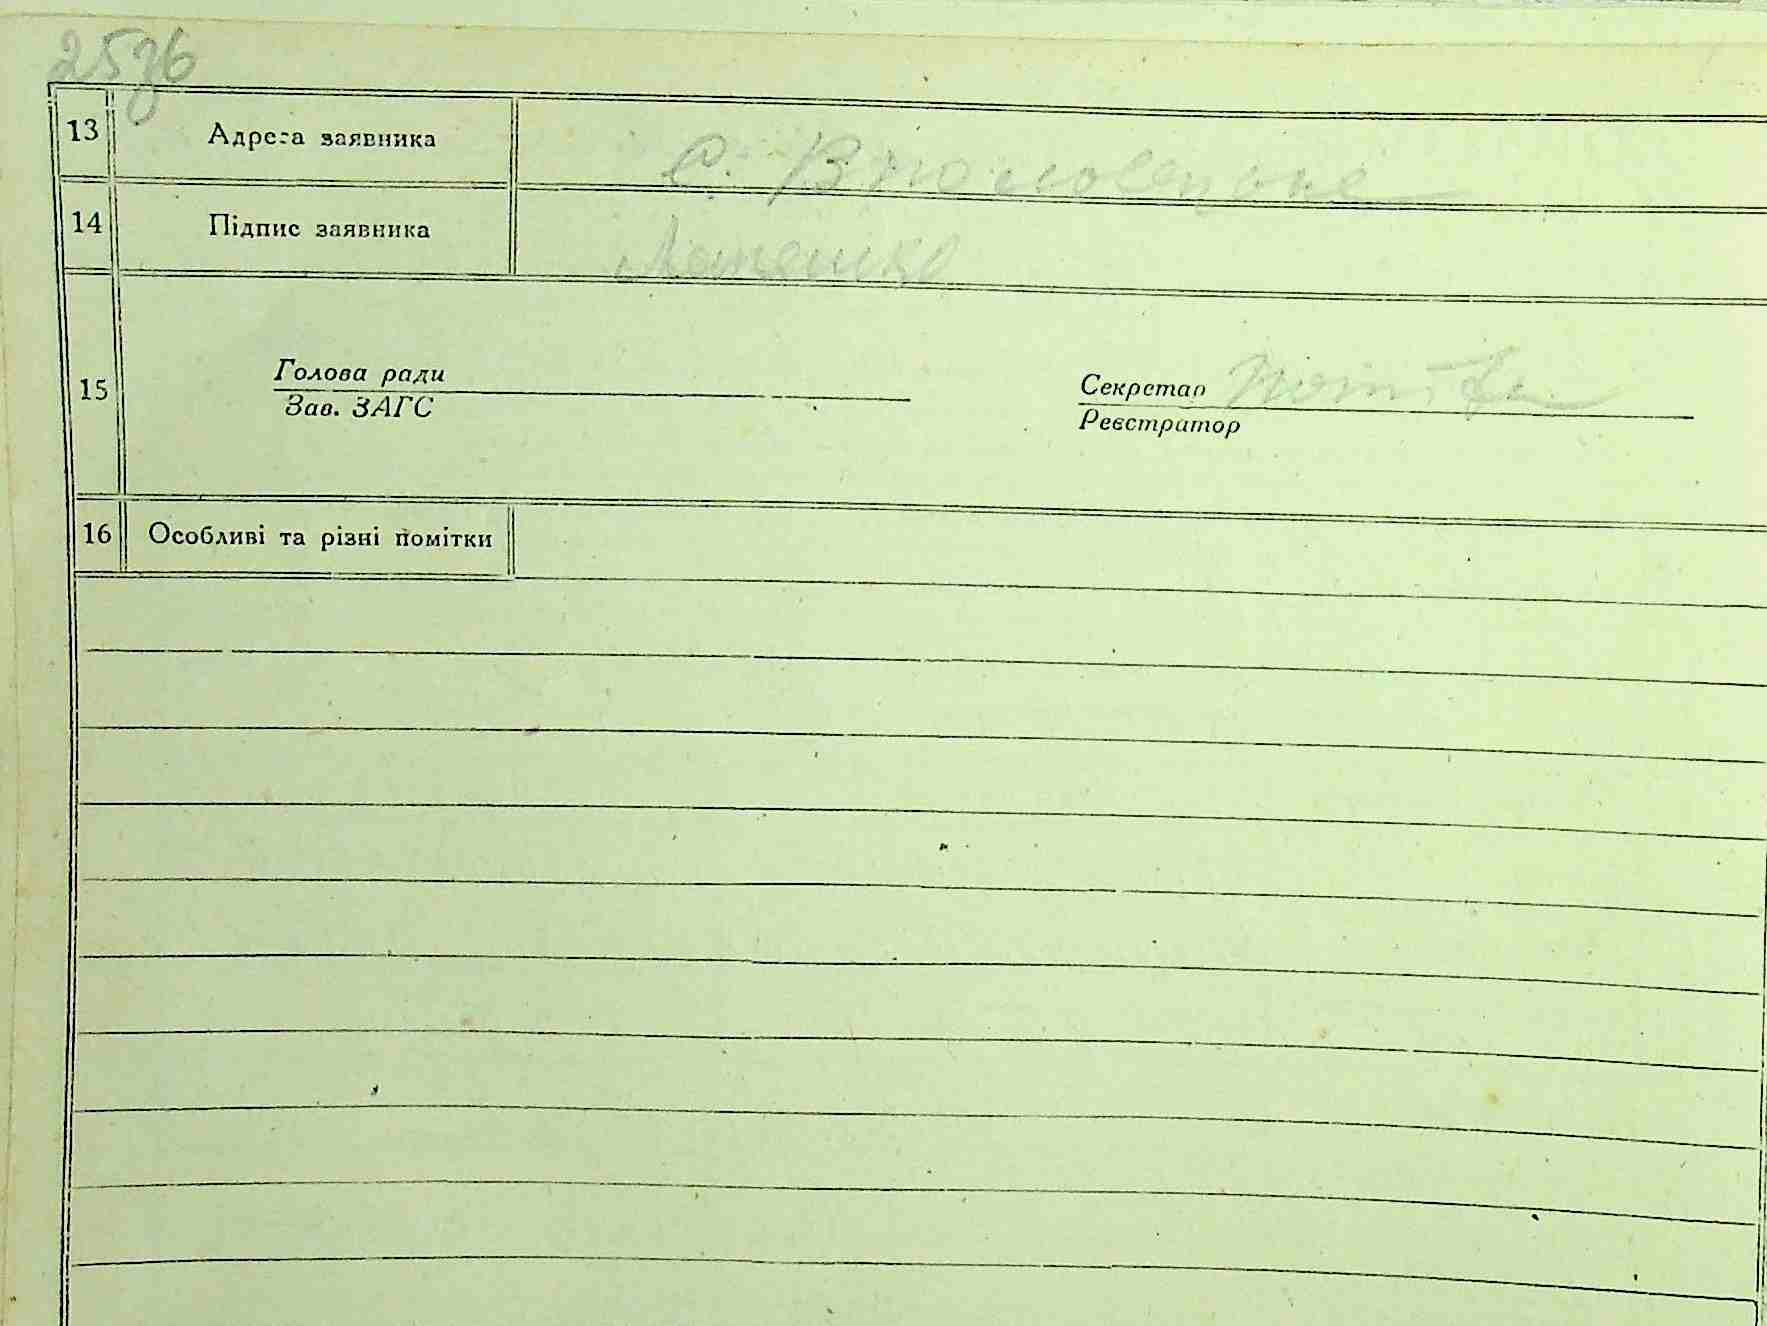 25зв
13 Адреса заявника С.
14 Підпис заявника
15 Голова ради Секретар
Зав. ЗАГС Реєстратор
16 Особливі та різні помітки